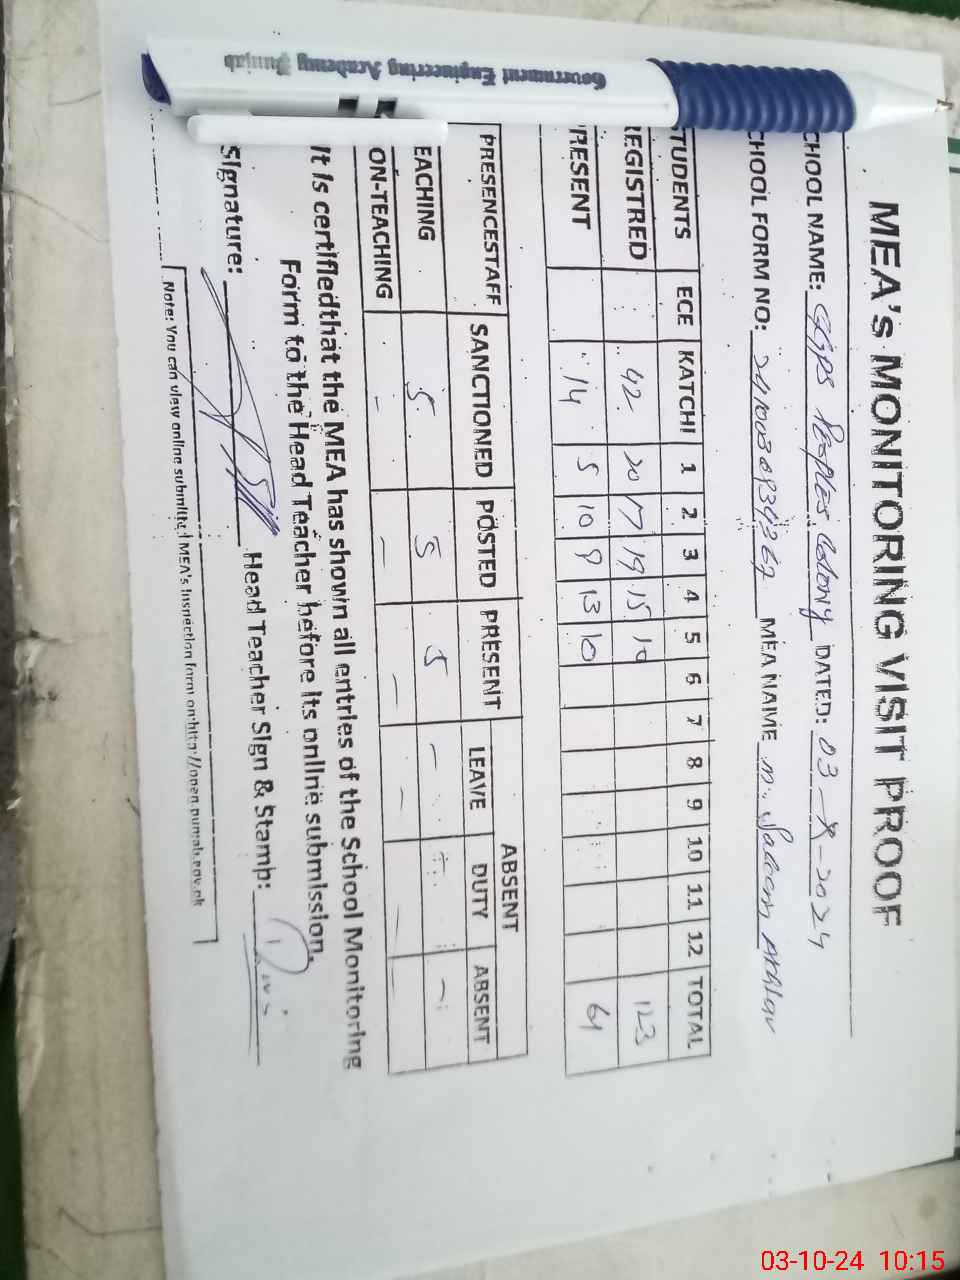 Government Engineering Academy Punjab
MEA's MONITORING VISIT PROOF
CHOOL NAME: GGPS Peoples Colony DATED: 03-X-2024
CHOOL FORM NO: MEA NAME M. Saleem
TUDENTS ECE KATCHI 1 2 3 4 5 6 7 8 9 10 11 12 TOTAL
REGISTRED 42 20 17 19 15 10 123
RESENT 14 5 10 9 13 10 61
PRESENCESTAFF SANCTIONED POSTED PRESENT ABSENT
LEAVE DUTY ABSENT
EACHING 5 5 5 - - -
ON-TEACHING - - - - - -
It is certifiedthat the MEA has shown all entries of the School Monitoring
Form to the Head Teacher before its online submission.
Signature: Head Teacher Sign & Stamp:
Note: You can view online submitted MEA's Inspection form on:http://open.punjab.gov.pk
03-10-24 10:15